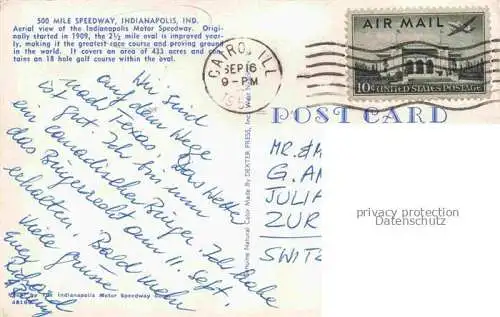 500 MILE SPEEDWAY, INDIANAPOLIS, IND.
Aerial view of the Indianapolis Motor Speedway. Origi-
nally started in 1909, the 2½ mile oval is improved year-
ly, making it the greatest race course and proving ground
in the world. It covers an area of 433 acres and con-
tains an 18 hole golf course within the oval.
CAIRO, ILL
SEP 16
9 - PM
AIR MAIL
10¢ UNITED STATES POSTAGE
POST CARD
Wir sind
auf dem Wege
nach Texas. Das Wetter
ist gut. Ich bin nun
ein canadischer Bürger. Ich habe
das Bürgerrecht am 11. Sept.
erhalten. Bald mehr
Viele Grüsse
Euer Richard
MR. &
G. A
JULIA
ZUR
SWITZ
privacy protection
Datenschutz
Genuine Natural Color Made by DEXTER PRESS, Inc.
by The Indianapolis Motor Speedway